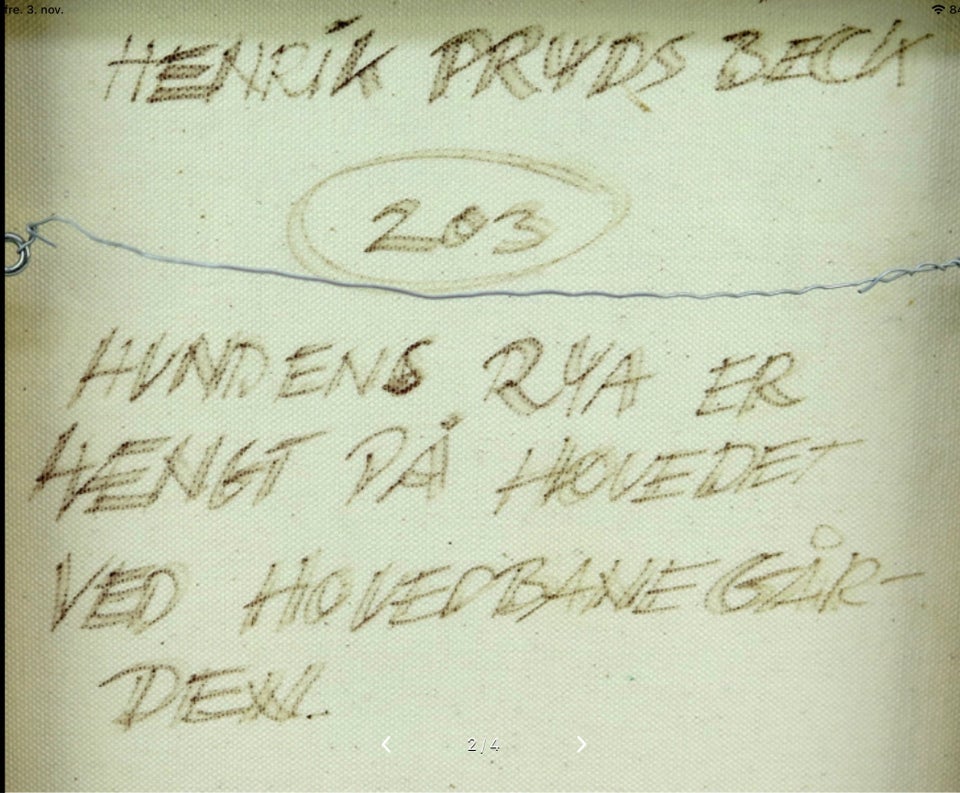 fre. 3. nov.
84
HENRIK PRUDS BECK
203
HUNDENS RYA ER
HENGT PÅ HOVEDET
VED HOVEDBANEGÅR-
DEN.
2/4